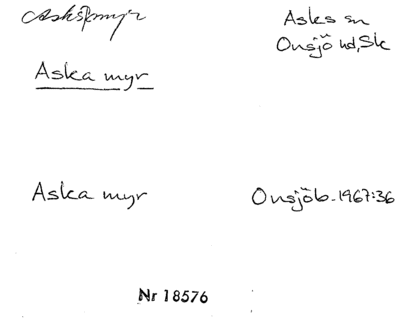 Asks myr
Asks sn
Onsjö hd, Sk
Aska myr
Aska myr
Onsjöb. 1967:36
Nr 18576